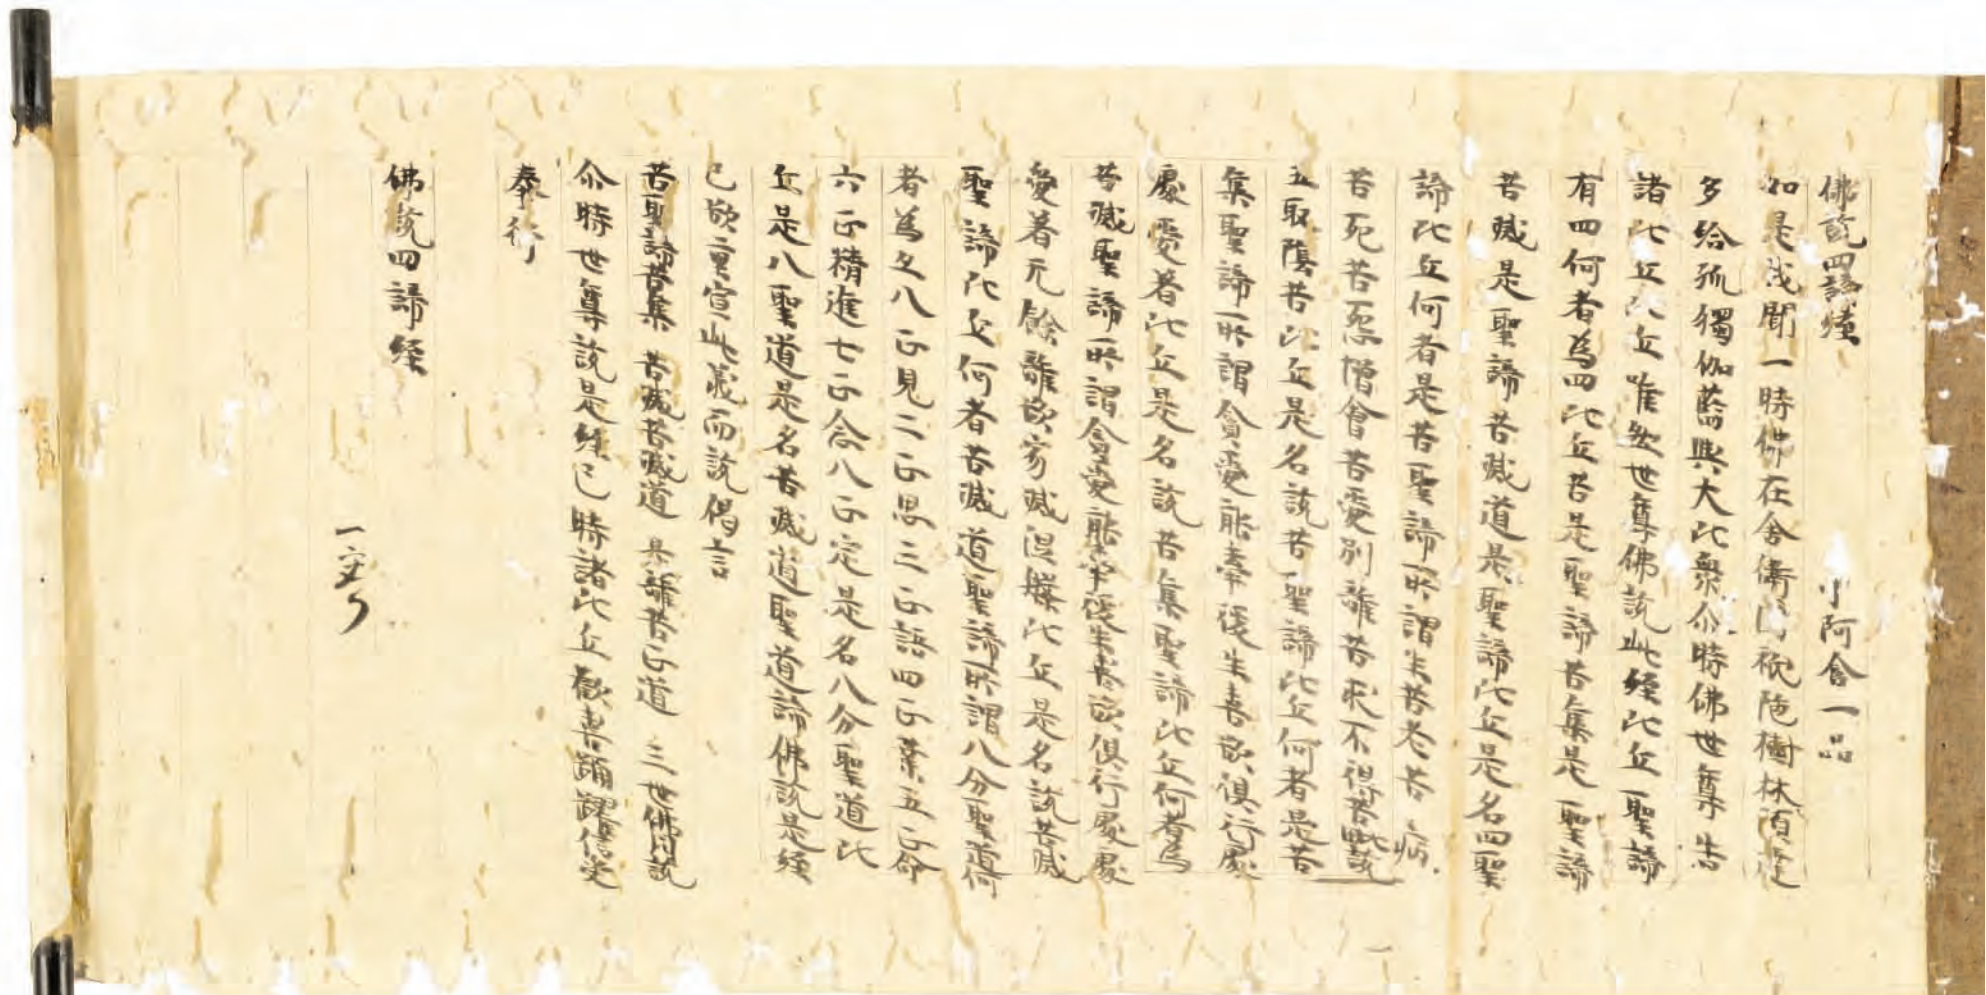 佛説四諦経 小阿含一品
如是我聞一時佛在舍衛國祇陁樹林須達
多給孤獨伽藍與大比衆尒時佛世尊告
諸比丘比丘唯然世尊佛説此経比丘聖諦
有四何者為四比丘苦是聖諦苦集是聖諦
苦滅是聖諦苦滅道是聖諦比丘是名四聖
諦比丘何者是苦聖諦所謂生苦老苦病
苦死苦怨憎會苦愛別離苦求不得苦略説
五取陰苦比丘是名説苦聖諦比丘何者是苦
集聖諦所謂貪愛能牽後生喜欲俱行處
處愛著比丘是名説苦集聖諦比丘何者為
苦滅聖諦所謂貪愛能牽後生喜欲俱行處處
愛著无餘離欲寂滅涅槃比丘是名説苦滅
聖諦比丘何者苦滅道聖諦所謂八分聖道何
者為之八一正見二正思三正語四正業五正命
六正精進七正念八正定是名八分聖道比
丘是八聖道是名苦滅道聖道諦佛説是経
已欲重宣此義而説偈言
苦聖諦苦集 苦滅苦滅道 是離苦正道 三世佛同説
尒時世尊説是経已時諸比丘歡喜踊躍信受
奉行
佛説四諦経
一交了